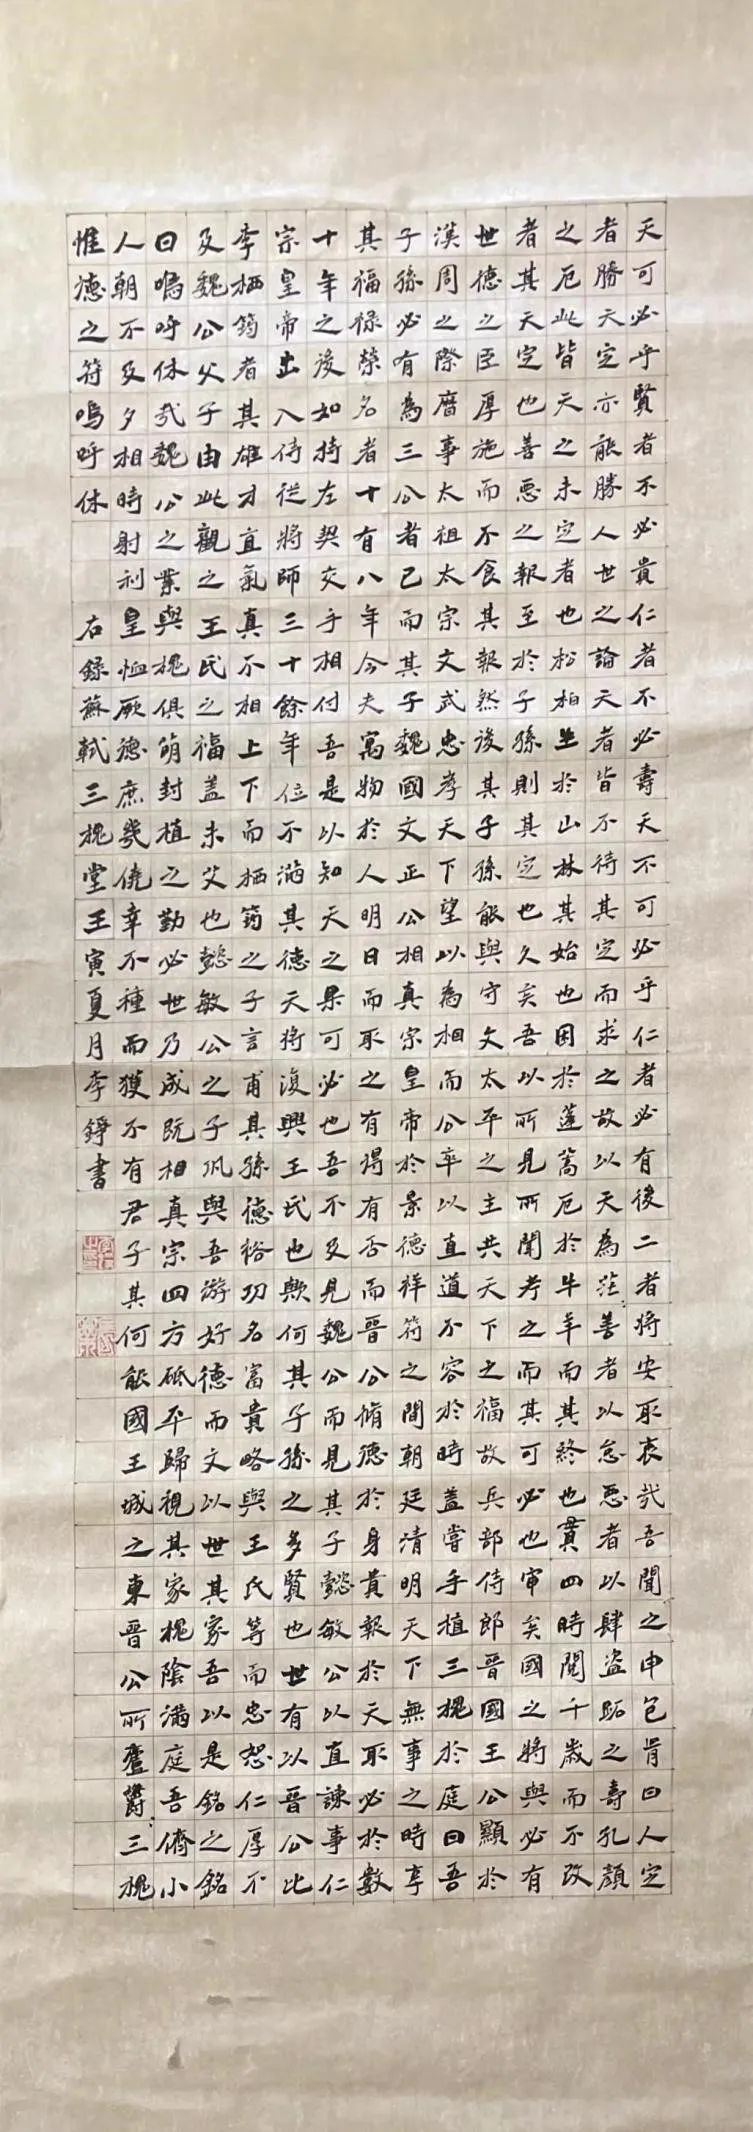 天可必乎賢者不必貴仁者不必壽天不可必乎仁者必有後二者將安取衷哉吾聞之申包胥曰人定
者勝天定亦能勝人世之論天者皆不待其定而求之故以天為茫善者以怠惡者以肆盜跖之壽孔顏
之厄此皆天之未定者也松柏生於山林其始也困於蓬蒿厄於牛羊而其終也貫四時閱千歲而不改
者其天定也善惡之報至於子孫則其定也久矣吾以所見所聞考之而其可必也審矣國之將與必有
世德之臣厚施而不食其報然後其子孫能與守文太平之主共天下之福故兵部侍郎晉國王公顯於
漢周之際曆事太祖太宗文武忠孝天下望以為相而公卒以直道不容於時蓋嘗手植三槐於庭曰吾
子孫必有為三公者已而其子魏國文正公相真宗皇帝於景德祥符之間朝廷清明天下無事之時享
其福祿榮名者十有八年今夫寓物於人明日而取之有得有否而晉公脩德於身責報於天取必於數
十年之後如持左契交手相付吾是以知天之果可必也吾不及見魏公而見其子懿敏公以直諫事仁
宗皇帝出入侍從將帥三十餘年位不滿其德天將復興王氏也歟何其子孫之多賢也世有以晉公比
李栖筠者其雄才直氣真不相上下而栖筠之子言甫其孫德裕功名富貴略與王氏等而忠恕仁厚不
及魏公父子由此觀之王氏之福蓋未艾也懿敏公之子巩與吾游好德而文以世其家吾以是銘之銘
曰嗚呼休哉魏公之業與槐俱萌封植之勤必世乃成既相真宗四方砥平歸視其家槐陰滿庭吾儕小
人朝不及夕相時射利皇恤厥德庶幾僥幸不種而獲不有君子其何能國王城之東晉公所廬鬱三槐
惟德之符嗚呼休 右錄蘇軾三槐堂壬寅夏月李錚書